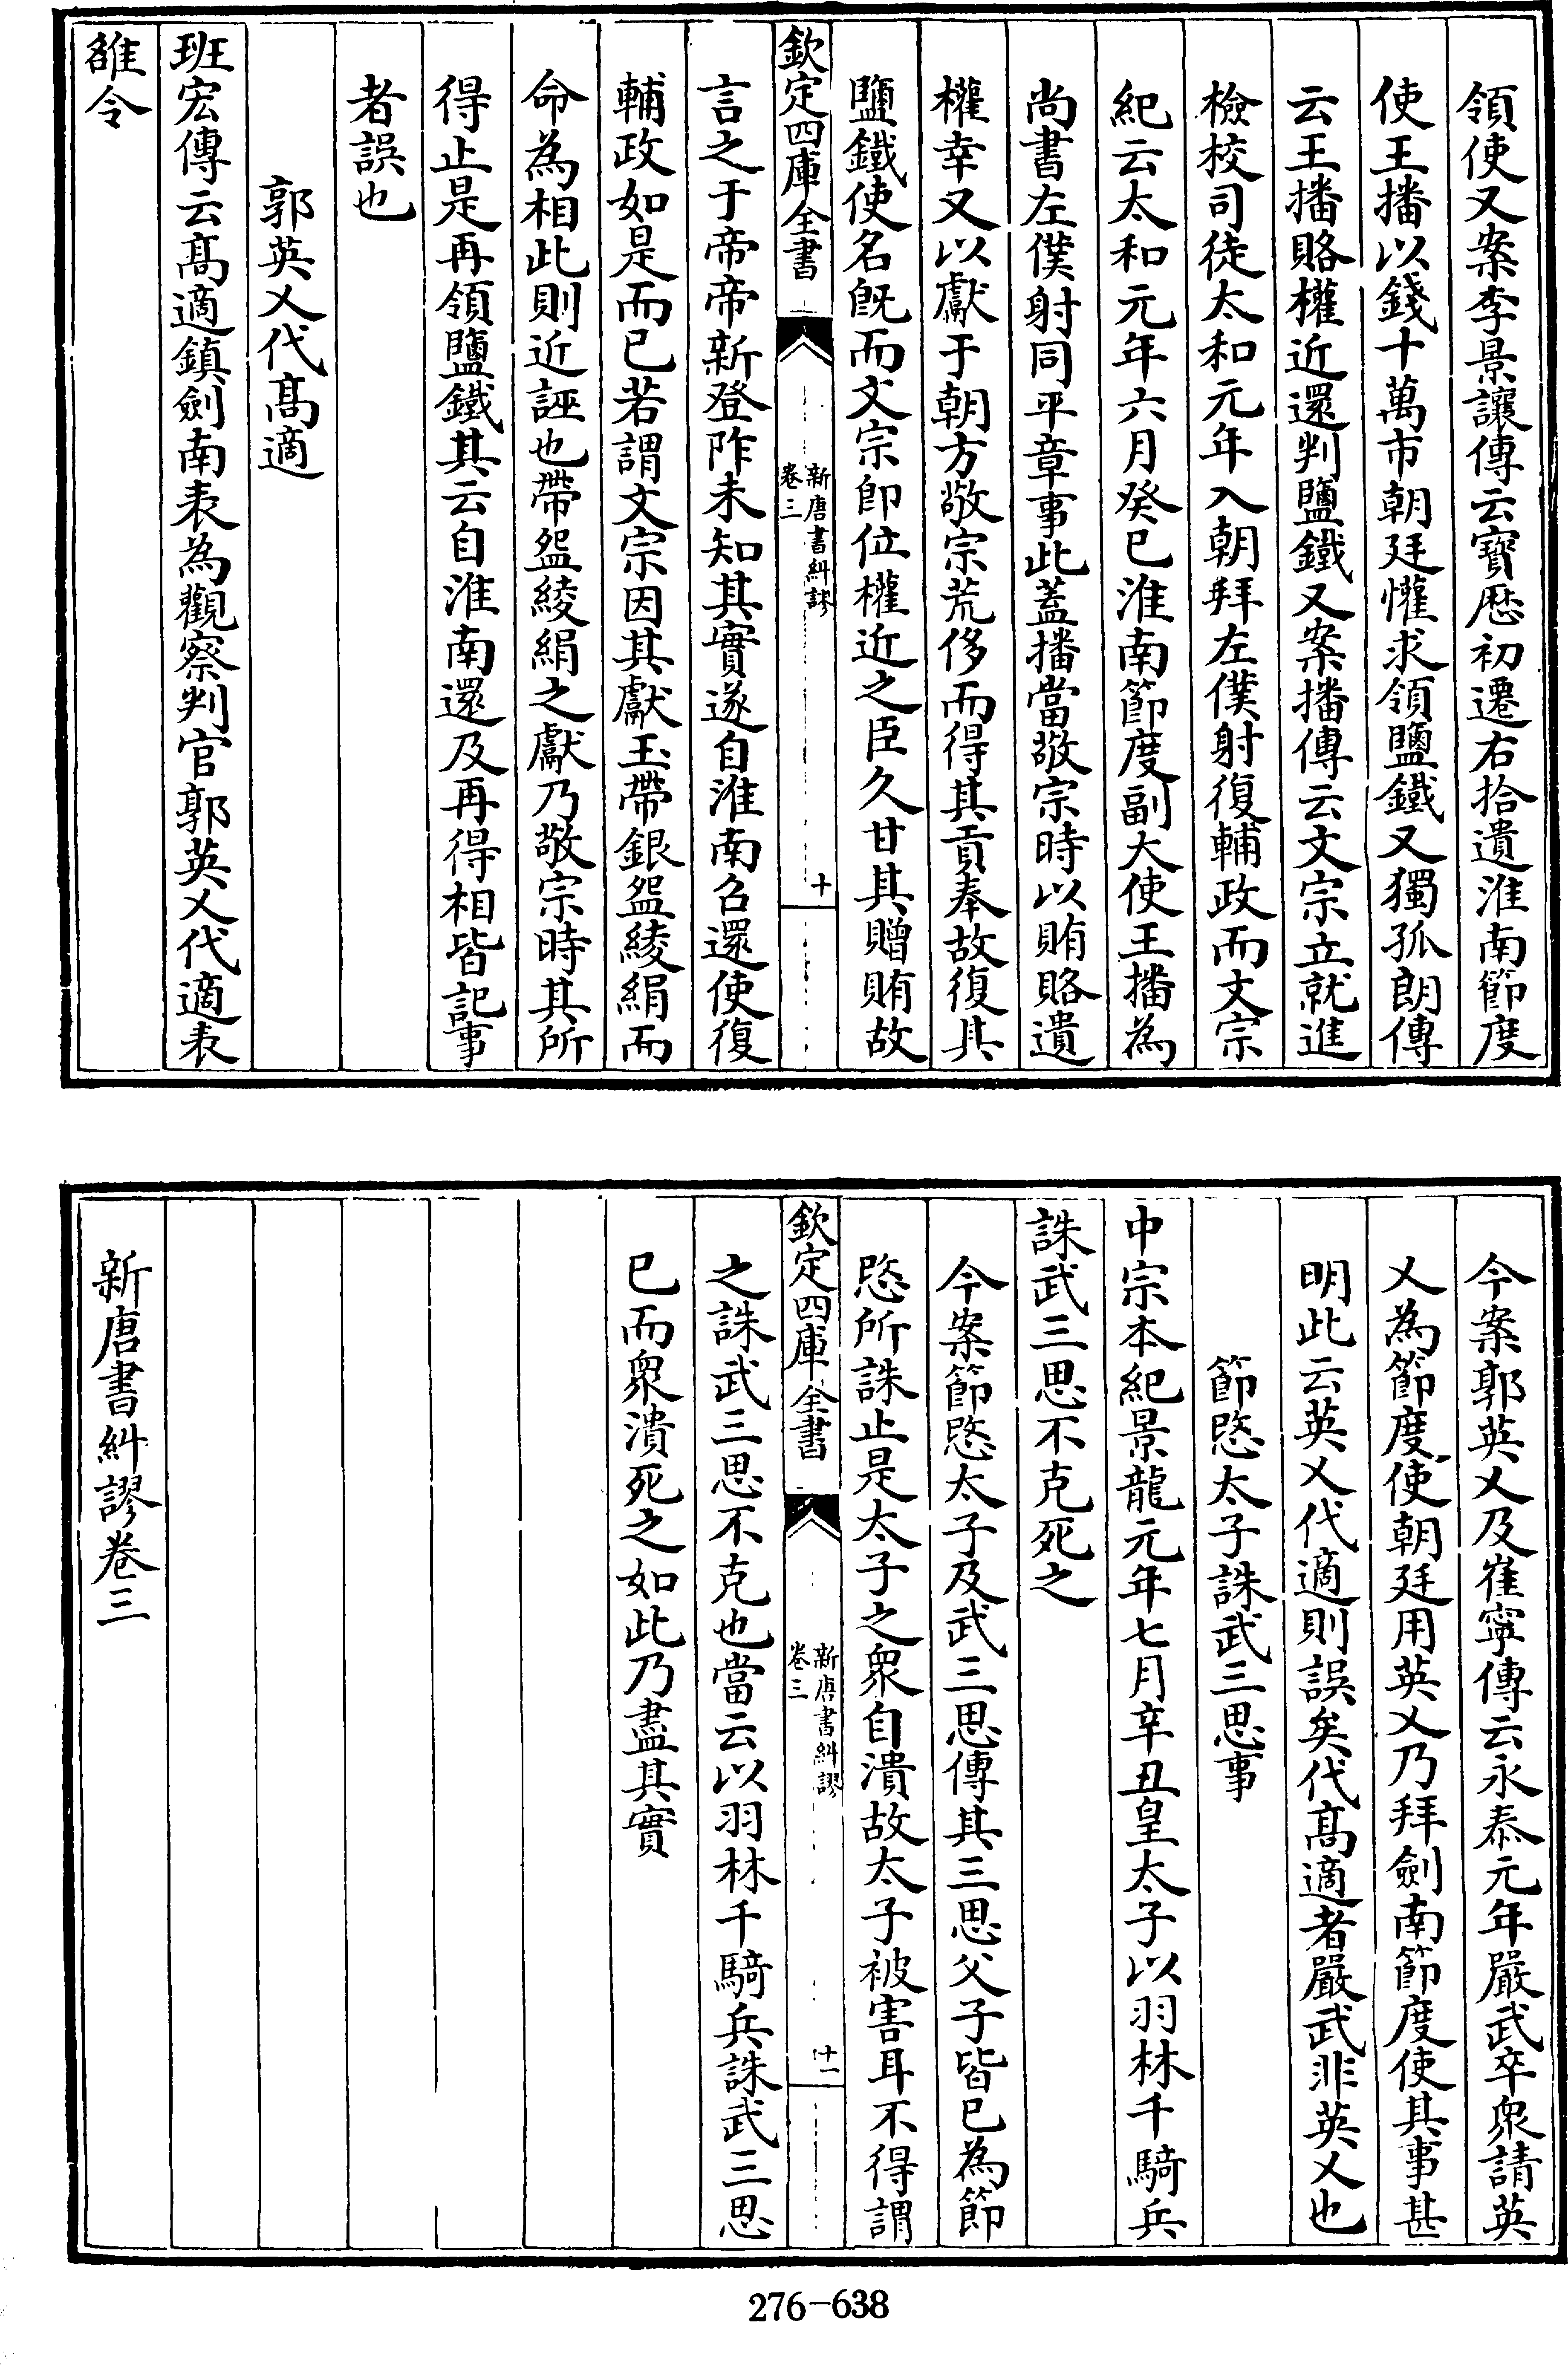 領使又案李景讓傳云寳厯初遷右拾遺淮南節度
使王播以錢十萬市朝廷懽求領鹽鐵又獨孤朗傳
云王播賂權近還判鹽鐵又案播傳云文宗立就進
檢校司徒太和元年入朝拜左僕射復輔政而文宗
紀云太和元年六月癸巳淮南節度副大使王播為
尚書左僕射同平章事此蓋播當敬宗時以賄賂遺
權幸又以獻于朝方敬宗荒侈而得其貢奉故復其
鹽鐵使名旣而文宗卽位權近之臣久甘其贈賄故
欽定四庫全書
新唐書糾謬
卷三
十
言之于帝帝新登阼未知其實遂自淮南召還使復
輔政如是而已若謂文宗因其獻玉帶銀盌綾絹而
命為相此則近誣也帶盌綾絹之獻乃敬宗時其所
得止是再領鹽鐵其云自淮南還及再得相皆記事
者誤也
郭英乂代髙適
班宏傳云髙適鎮劍南表為觀察判官郭英乂代適表
雒令
今案郭英乂及崔寧傳云永泰元年嚴武卒衆請英
乂為節度使朝廷用英乂乃拜劍南節度使其事甚
明此云英乂代適則誤矣代髙適者嚴武非英乂也
節愍太子誅武三思事
中宗本紀景龍元年七月辛丑皇太子以羽林千騎兵
誅武三思不克死之
今案節愍太子及武三思傳其三思父子皆已為節
愍所誅止是太子之衆自潰故太子被害耳不得謂
欽定四庫全書
新唐書糾謬
卷三
十一
之誅武三思不克也當云以羽林千騎兵誅武三思
已而衆潰死之如此乃盡其實
新唐書糾謬卷三
276-638